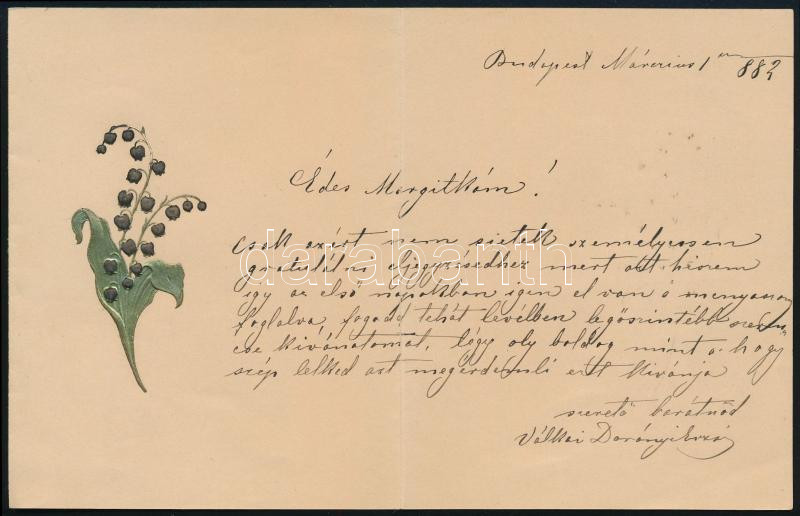 Budapest Márczius 1én 882
Édes Margitkám!
Csak azért nem sietek személyessen
gratulálni eljegyzésedhez mert azt hiszem
igy az első napokban igen el van a menyasszony
foglalva, fogadd tehát levélben legőszintébb szeren-
cse kivánatomat, légy oly boldog mint a-hogy
szép lelked azt megérdemli ezt kivánja
szerető barátnőd
Válkai Darányi Erzsi
darabanth